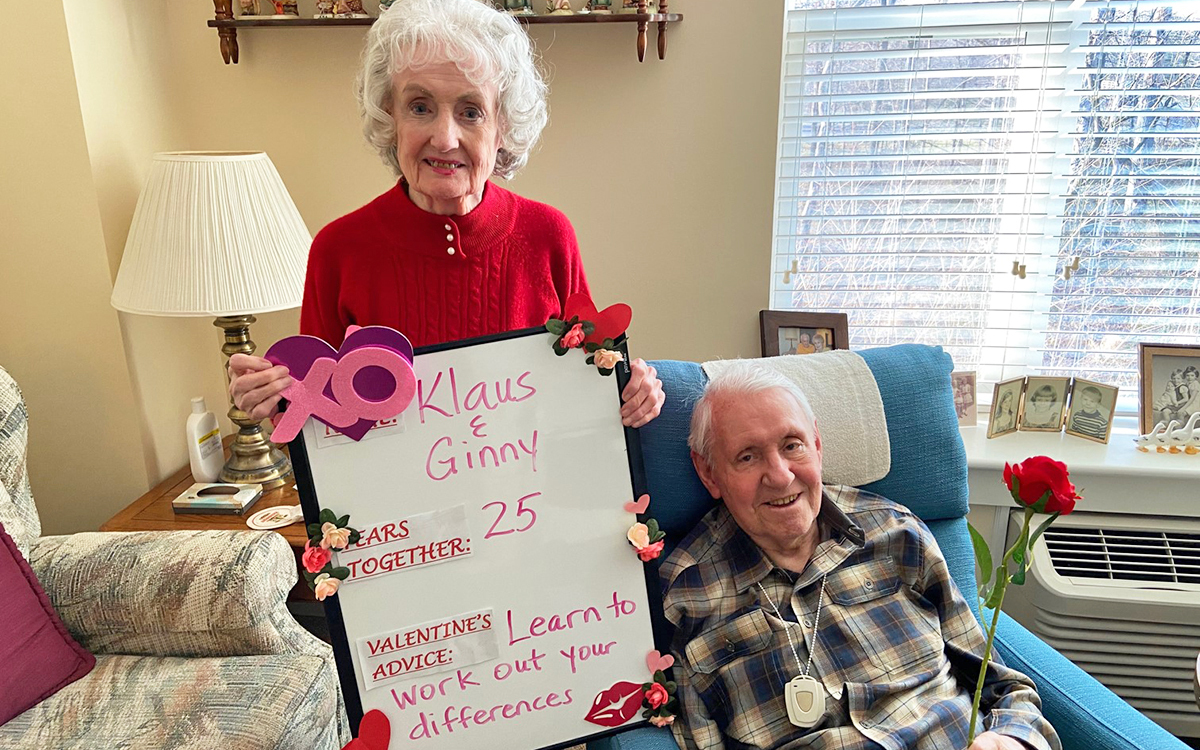 XO
Klaus
&
Ginny
TOGETHER: 25
VALENTINE'S
ADVICE: Learn to
work out your
differences